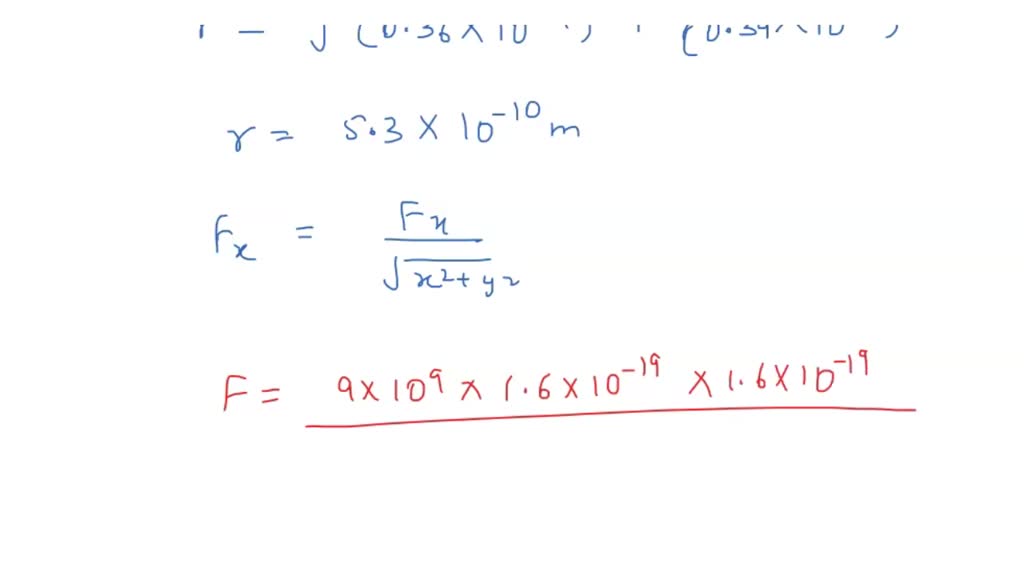 r = √(0.36×10
r = 5.3 × 10⁻¹⁰ m
Fₓ = Fx / √x²+y²
F = 9×10⁹ × 1.6×10⁻¹⁹ × 1.6×10⁻¹⁹